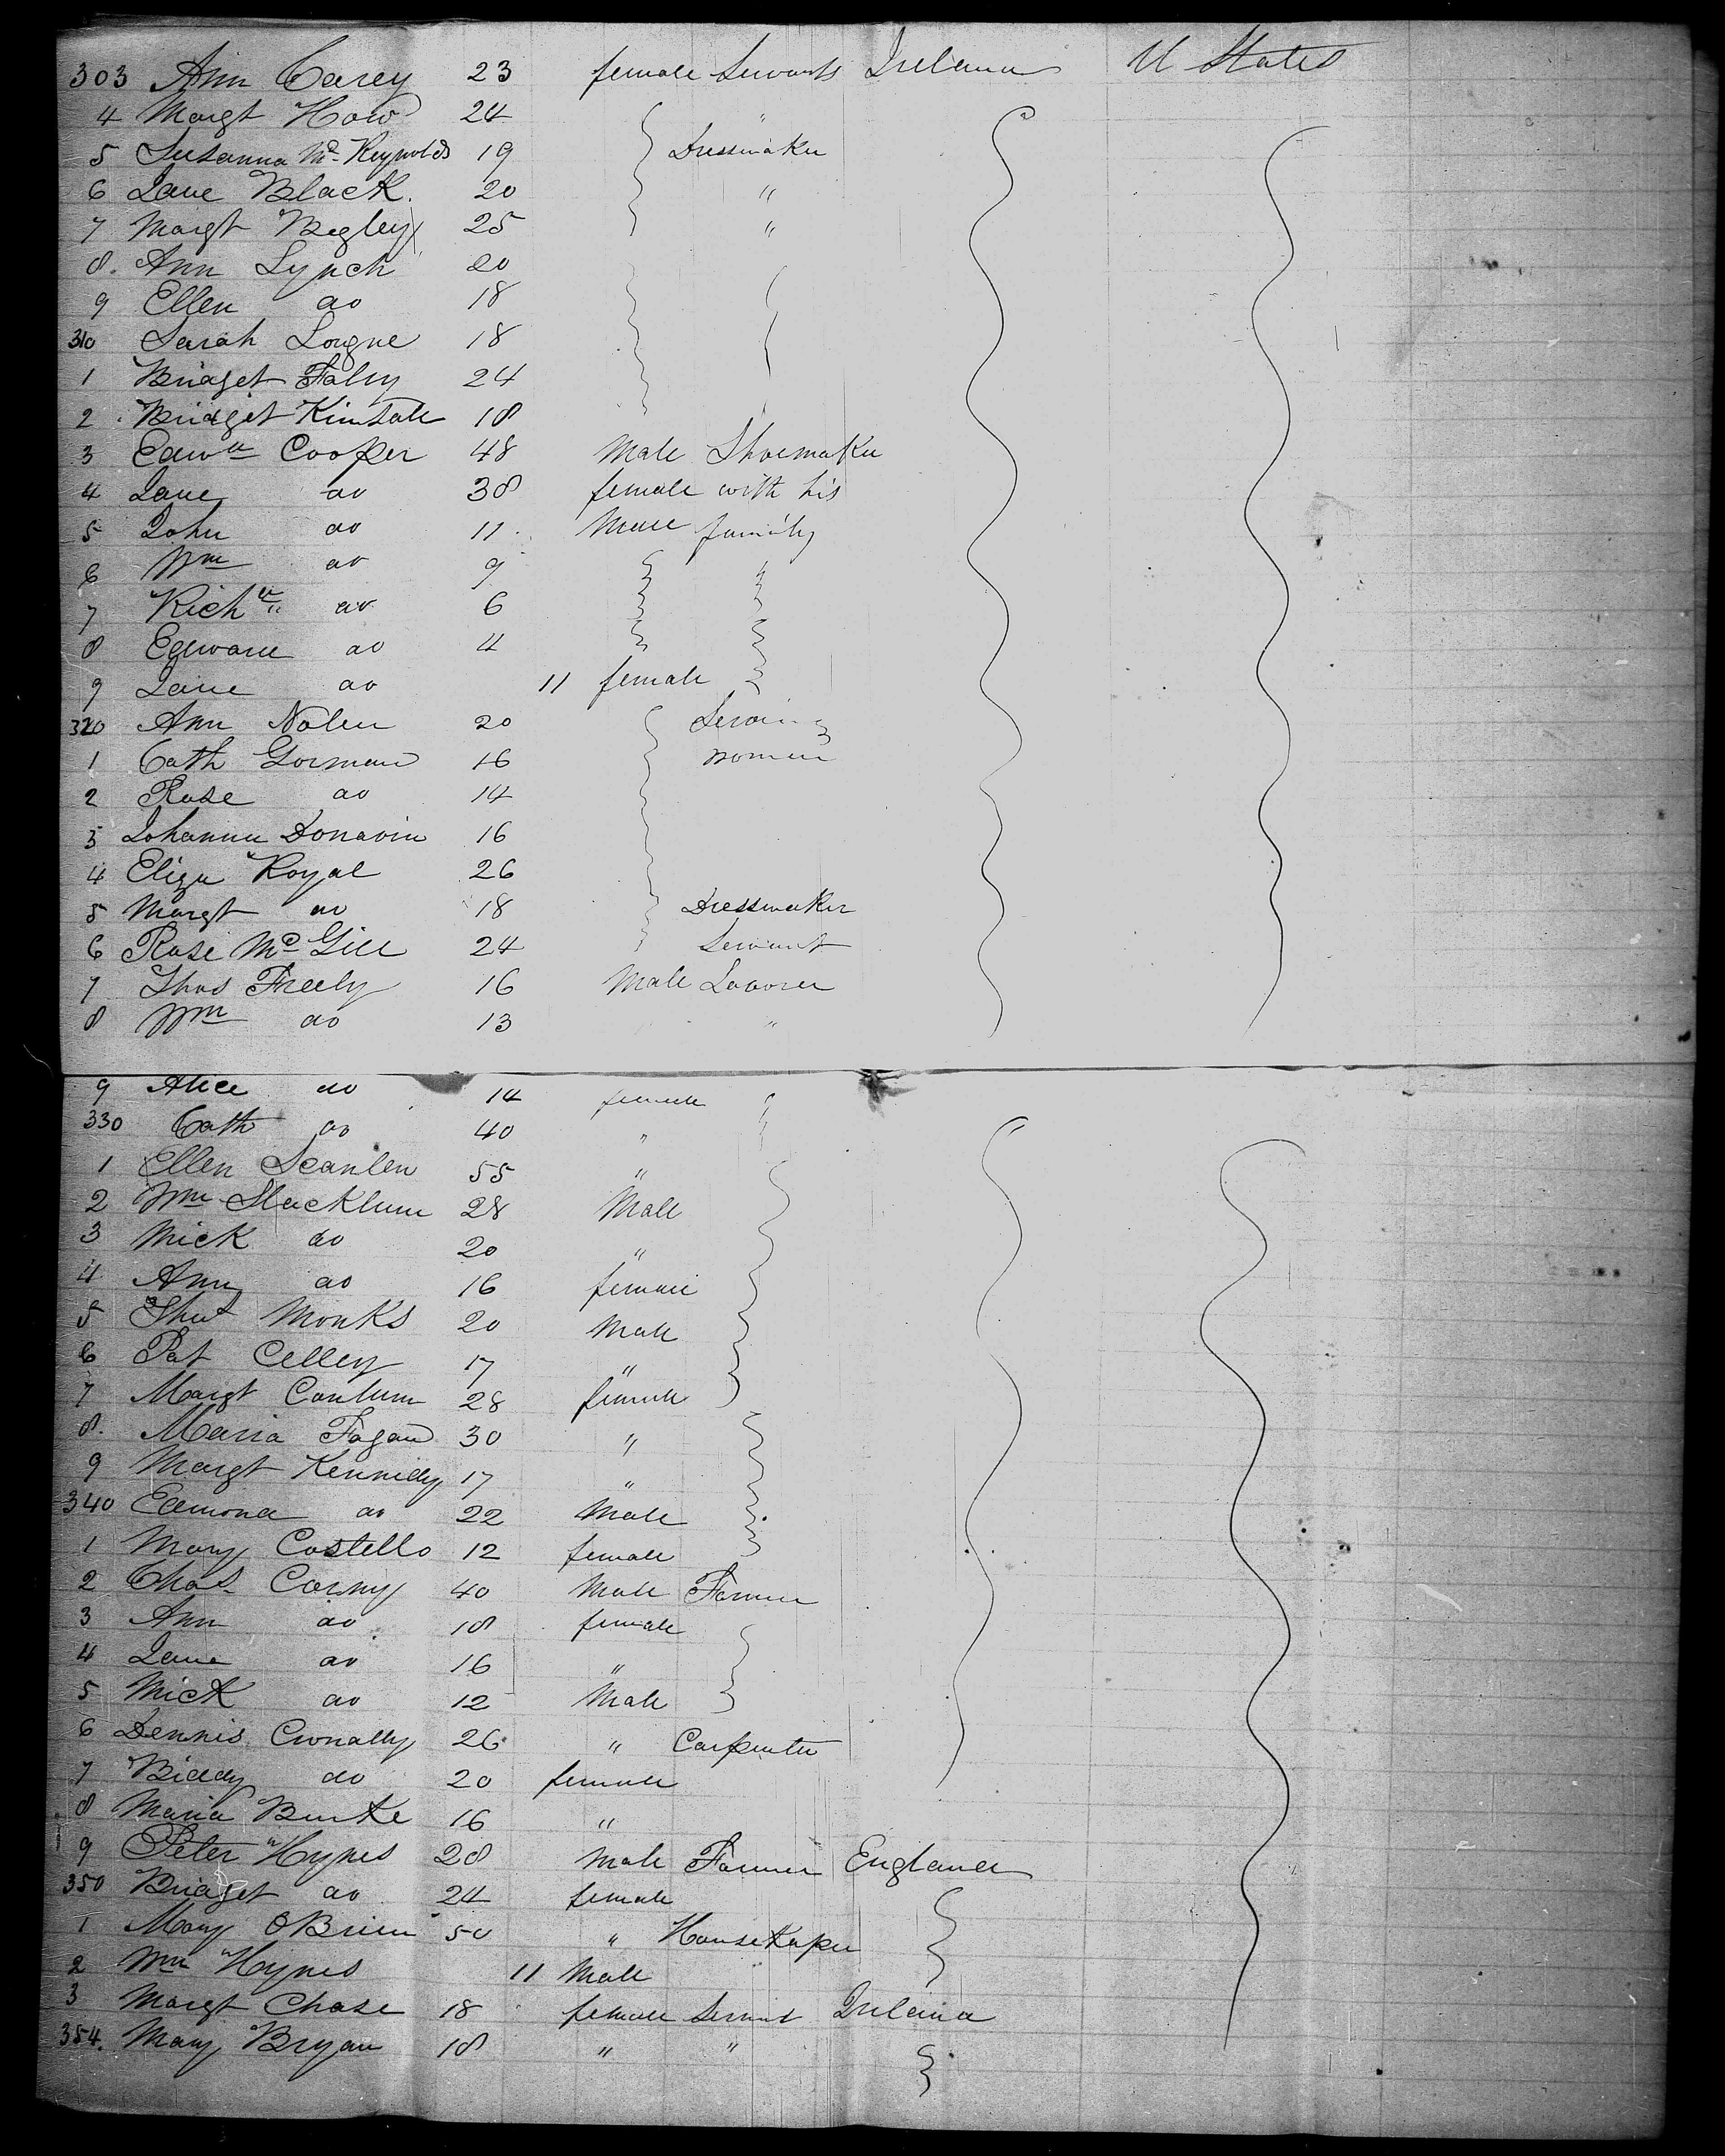 303 Ann Carey 23 female Servants Ireland U States
4 Margt How 24 "
5 Susanna Mc Reynolds 19 Dressmaker
6 Jane Black. 20 "
7 Margt Begley 25 "
8. Ann Lynch 20
9 Ellen do 18
310 Sarah Logue 18
1 Bridget 24
2 Bridget 18
3 Edwd Cooper 48 Male Shoemaker
4 Jane do 38 female with his
5 John do 11 Male family
6 Wm do 9
7 Richd do 6
8 Edward do 4
9 Jane do 11 female
320 Ann Nolen 20 Serving
1 Cath Gorman 16 women
2 Rose do 14
3 Johanna Donavin 16
4 Eliza Royal 26
5 Margt do 18 Dressmaker
6 Rose Mc Gill 24 Servant
7 Thos Freely 16 Male Laborer
8 Wm do 13 "
9 Alice do 14 female
330 Cath do 40 "
1 Ellen Scanlen 55 "
2 Wm 28 Male
3 Mick do 20 "
4 Ann do 16 female
5 Monks 20 Male
6 Pat Celley 17 "
7 Margt 28 female
8. Maria Fagan 30 "
9 Margt Kennidy 17 "
340 Edmond do 22 Male
1 Mary Costello 12 female
2 Chas 40 Male Farmer
3 Ann do 18 female
4 Jane do 16 "
5 Mick do 12 Male
6 Dennis Cronally 26 " Carpenter
7 Biddy do 20 female
8 Maria Burke 16 "
9 Peter Hynes 28 Male Farmer England
350 Bridget do 24 female
1 Mary OBrien 50 " Housekeper
2 Wm Hynes 11 Male
3 Margt Chase 18 female Servnt Ireland
354. Mary Bryan 18 " "